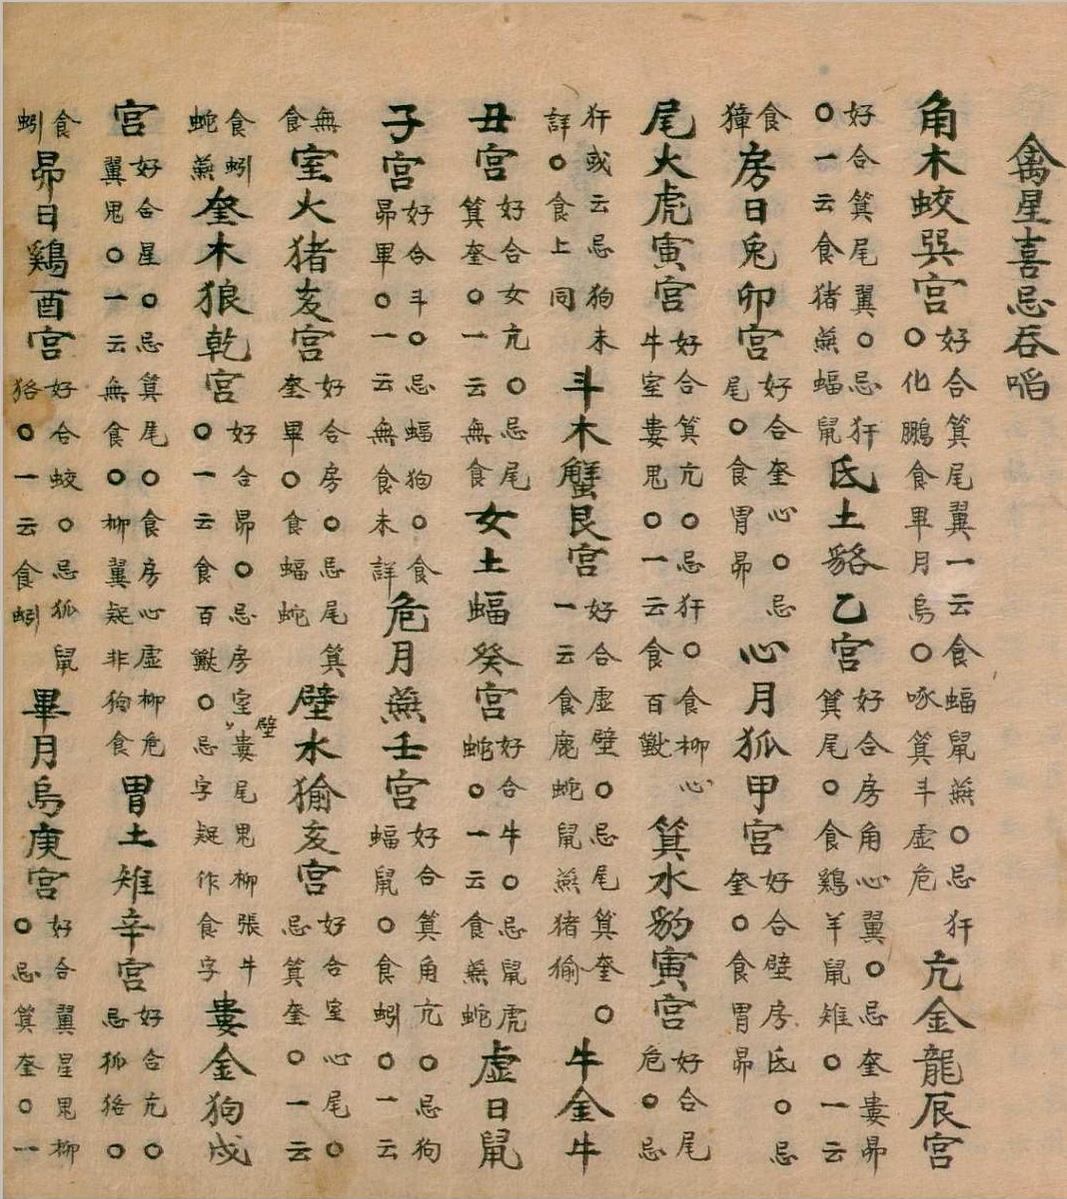 禽星喜忌吞啗
角木蛟巽宮好合箕尾翼一云食蝠鼠燕○忌犴○化鵬食畢月烏○啄箕斗虚危亢金龍辰宮
好合箕尾翼○忌犴○一云食猪燕蝠鼠氐土貉乙宮好合房角心翼○忌奎婁昴箕尾○食鷄羊鼠雉○一云
食獐房日兔卯宮好合奎心○忌尾○食胃昴心月狐甲宮好合壁房氐○忌奎○食胃昴
尾火虎寅宮好合箕亢○忌犴○食柳心牛室婁鬼○一云食百獸箕水豹寅宮好合尾危○忌
犴或云忌狗未詳○食上同斗木蟹艮宮好合虚壁○忌尾箕奎○一云食鹿蛇鼠燕猪㺄牛金牛
丑宮好合女亢○忌尾箕奎○一云無食女土蝠癸宮好合牛○忌鼠虎蛇○一云食燕蛇虚日鼠
子宮好合斗○忌蝠狗○食昴畢○一云無食未詳危月燕壬宮好合箕角亢○忌狗蝠鼠○食蚓○一云
無食室火猪亥宮好合房○忌尾箕奎畢○食蝠蛇壁水㺄亥宮好合室心尾○忌箕奎○一云
食蚓蛇燕奎木狼乾宮好合昴○忌房室壁婁尾鬼柳張牛○一云食百獸○忌字疑作食字婁金狗戌
宮好合星○忌箕尾○食房心虚柳危翼鬼○一云無食○柳翼疑非狗食胃土雉辛宮好合亢○忌狐狢○
食蚓昴日鷄酉宮好合蛟○忌狐鼠狢○一云食蚓畢月烏庚宮好合翼星鬼柳○忌箕奎○一